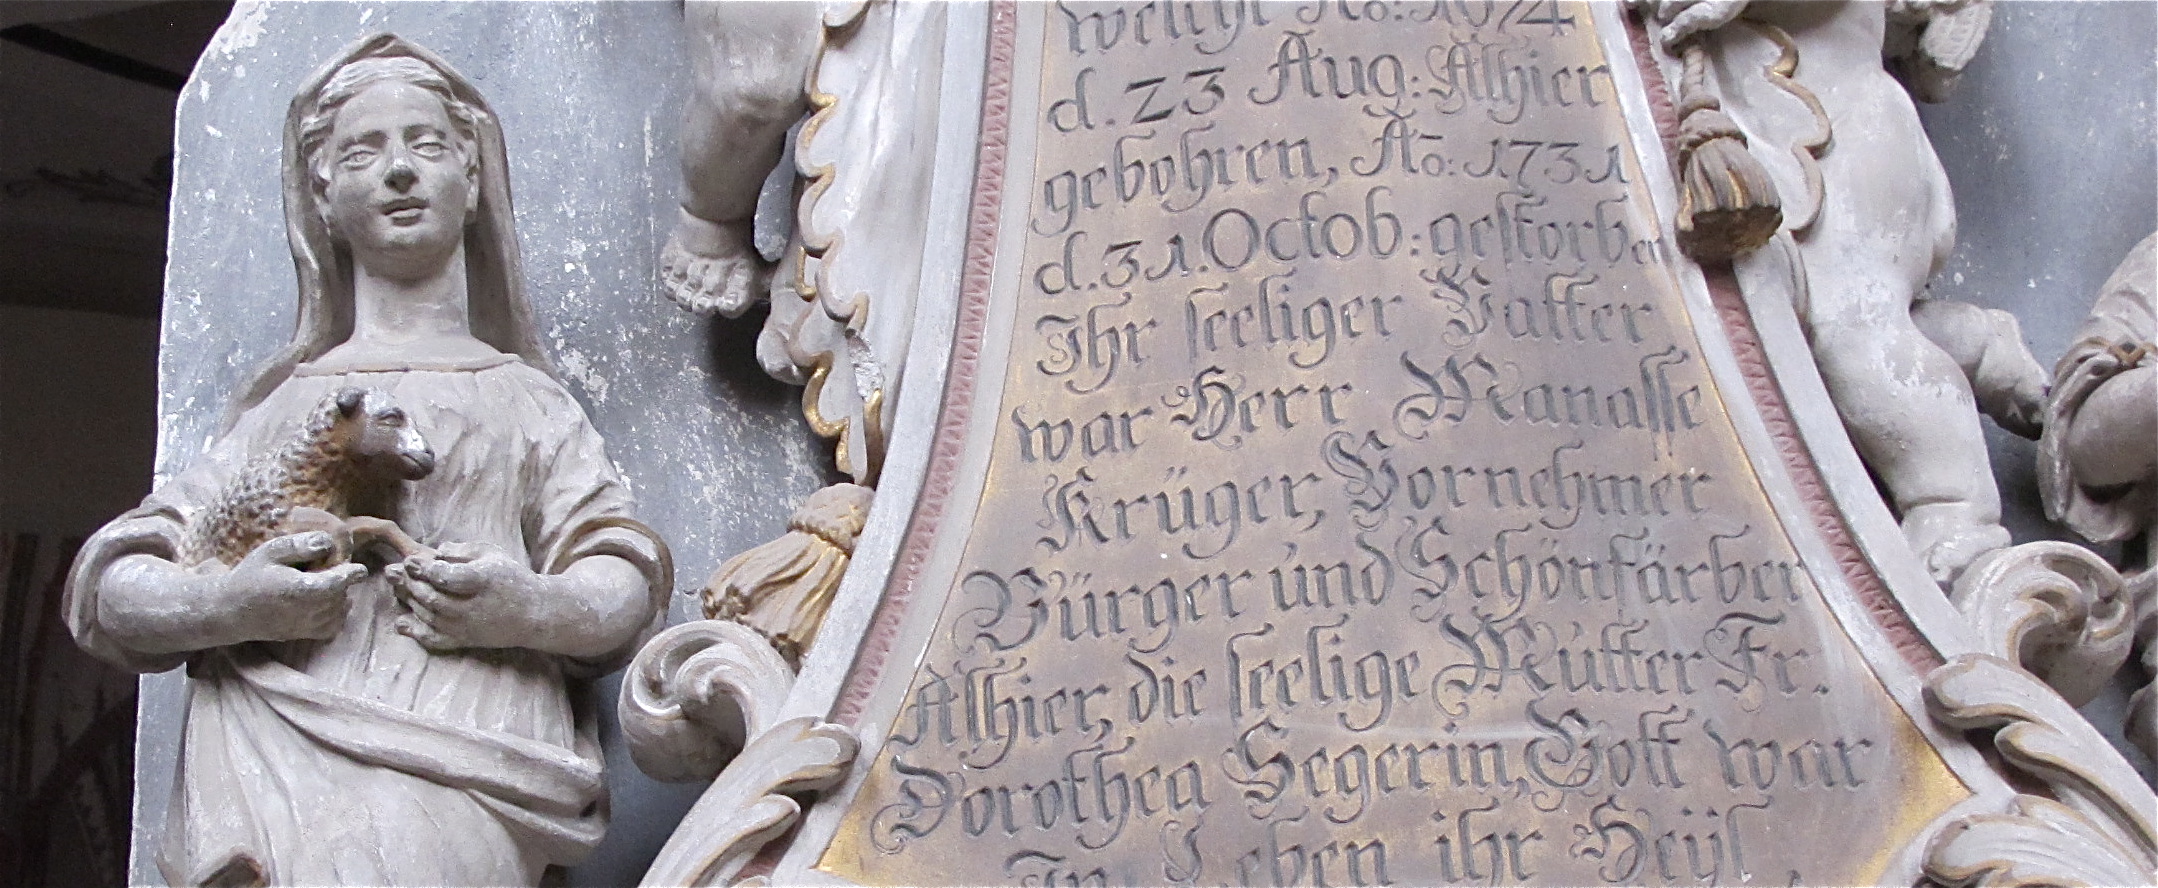 welche Ao: 1674
d. 23 Aug: Alhier
gebohren, Ao: 1731
d. 31. Octob: gestorben
Ihr seeliger Vatter
war Herr Manasse
Krüger, Vornehmer
Bürger und Schönfärber
Alhier, die seelige Mutter Fr.
Dorothea Segerin, Gott war
Im Leben ihr Heyl